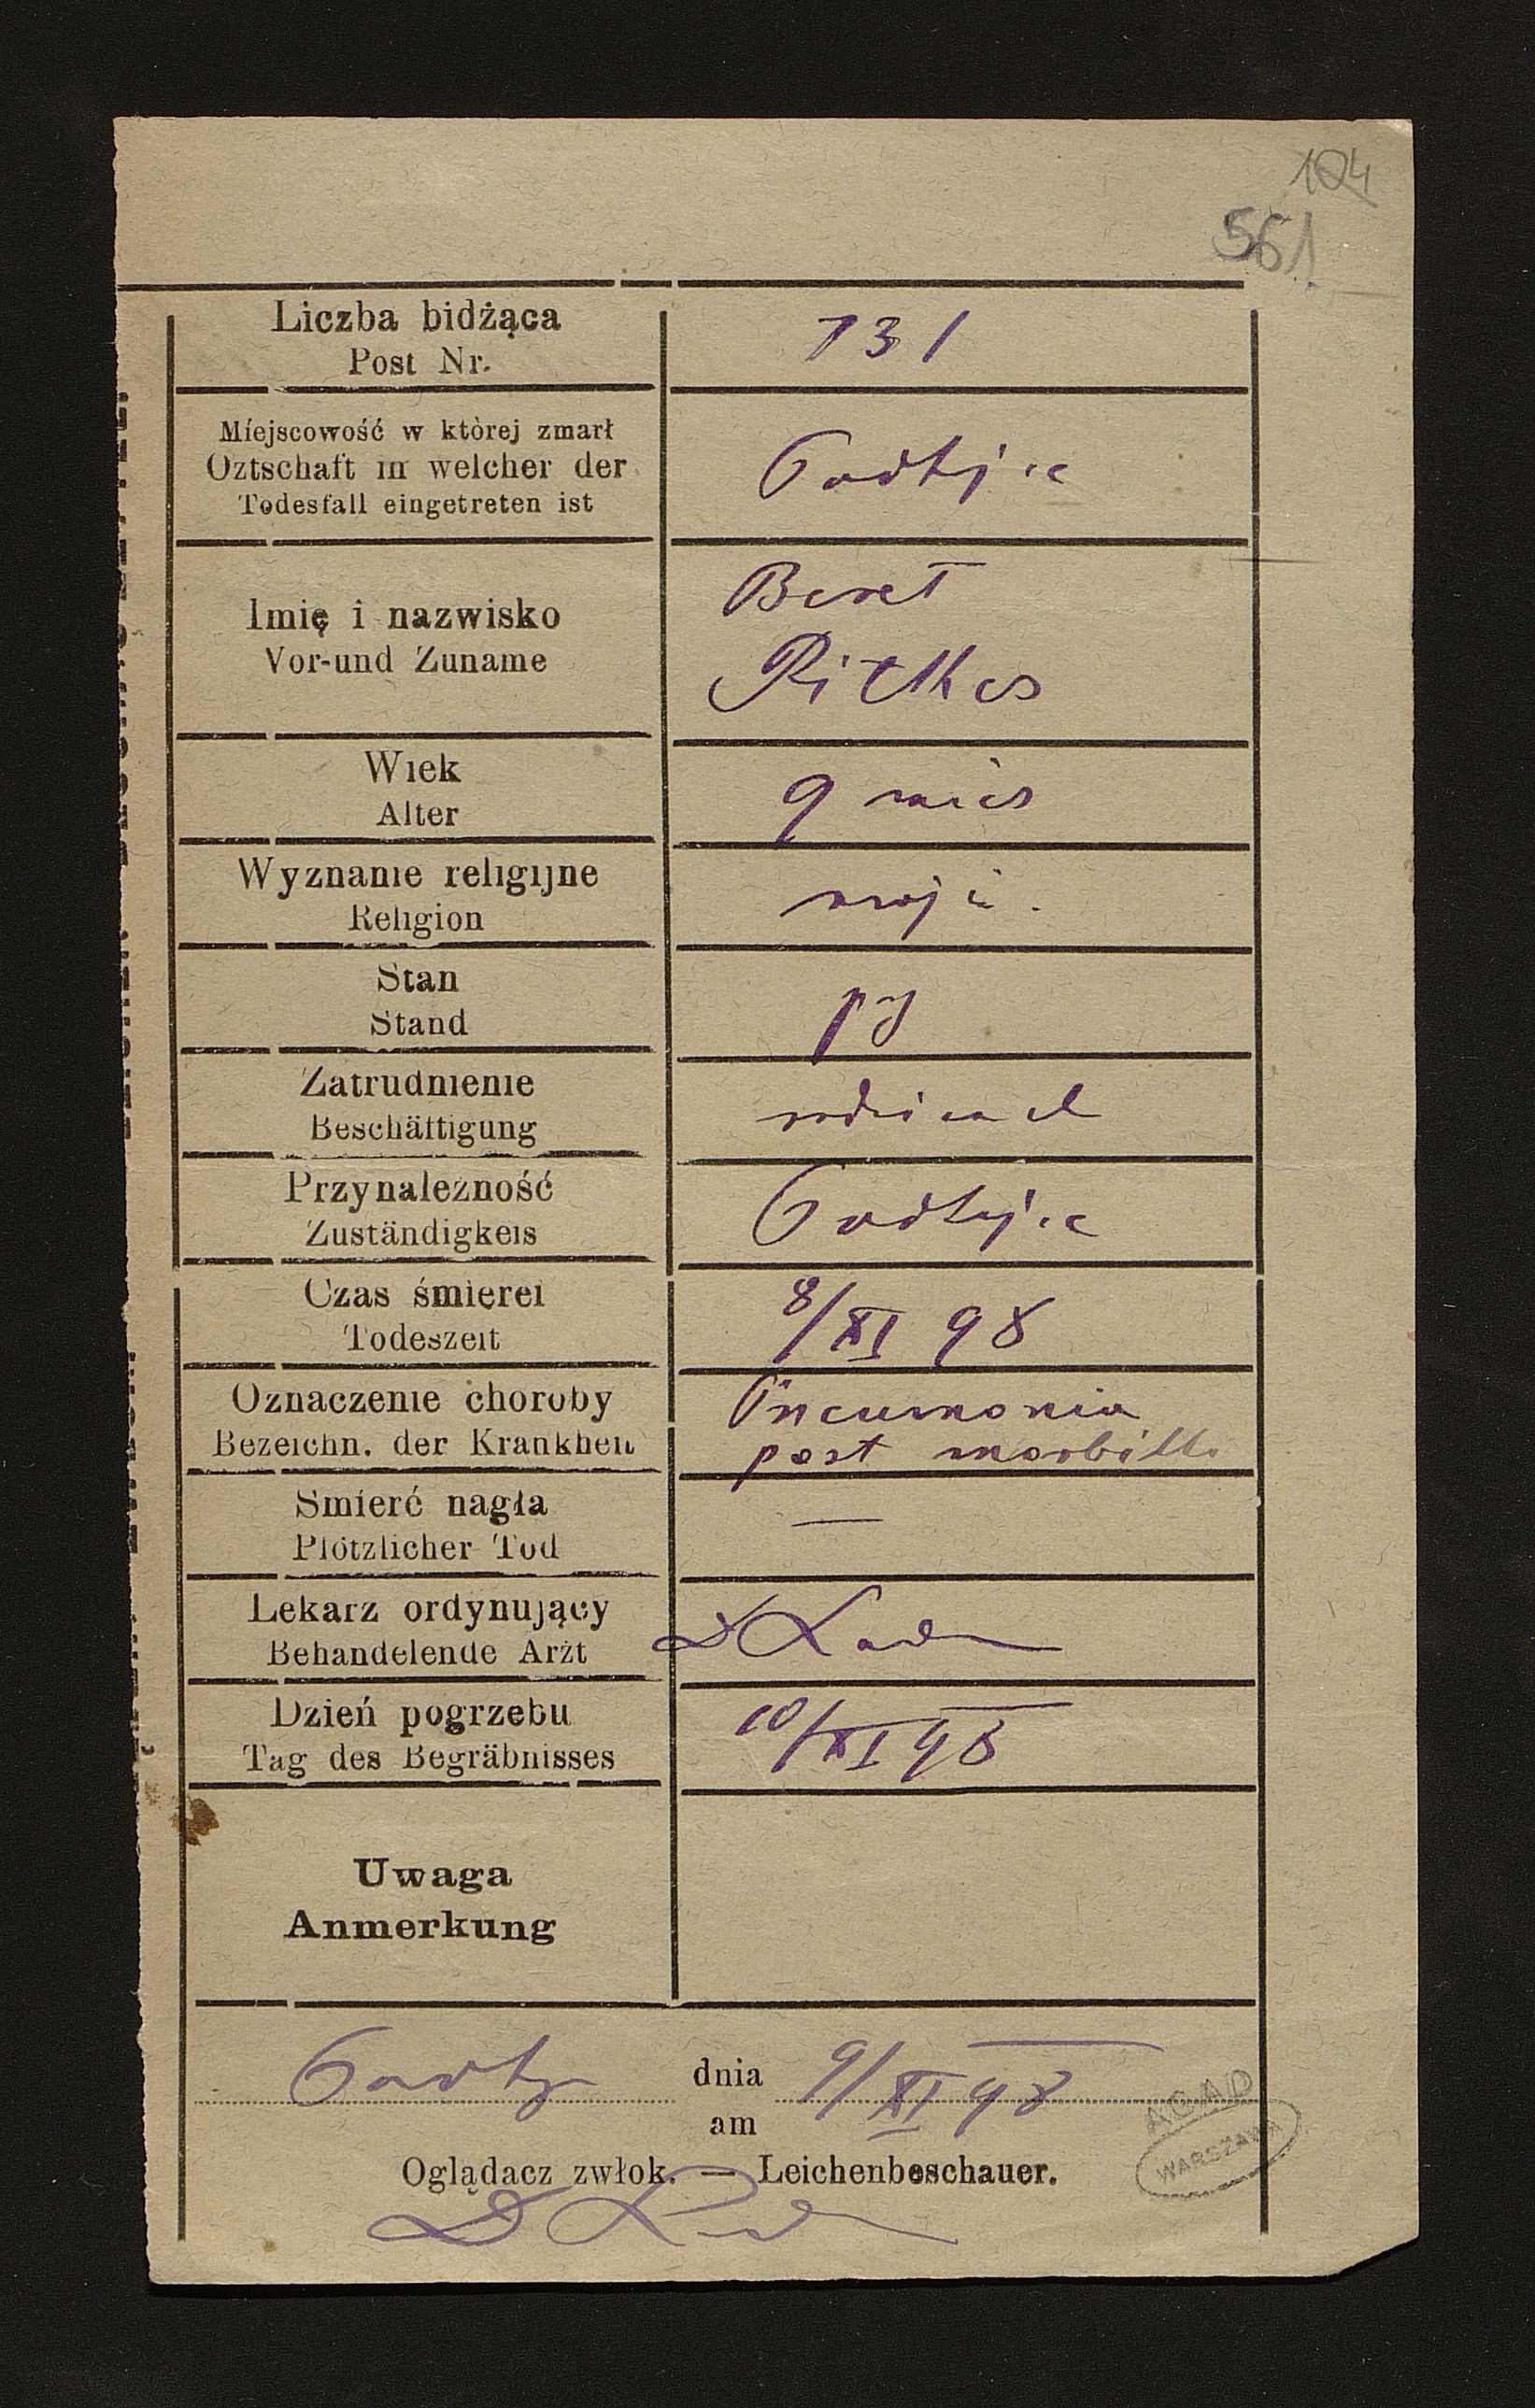 124
561
Liczba bidżąca
Post Nr.
131
Miejscowość w której zmarł
Oztschaft in welcher der
Todesfall eingetreten ist
Imię i nazwisko
Vor-und Zuname
Beret
Wiek
Alter
9 mies
Wyznanie religijne
Religion
mojż.
Stan
Stand
Zatrudnienie
Beschäftigung
Przynależność
Zuständigkeis
Czas śmierei
Todeszeit
8/XI 98
Oznaczenie choroby
Bezeichn. der Krankheit
Pneumonia
post morbilli
Smierć nagła
Plötzlicher Tod
—
Lekarz ordynujący
Behandelende Arżt
Dzień pogrzebu
Tag des Begräbnisses
10/XI 98
Uwaga
Anmerkung
dnia 9/XI 98
am
Oglądacz zwłok. — Leichenbeschauer.
AGAD
WARSZAWA